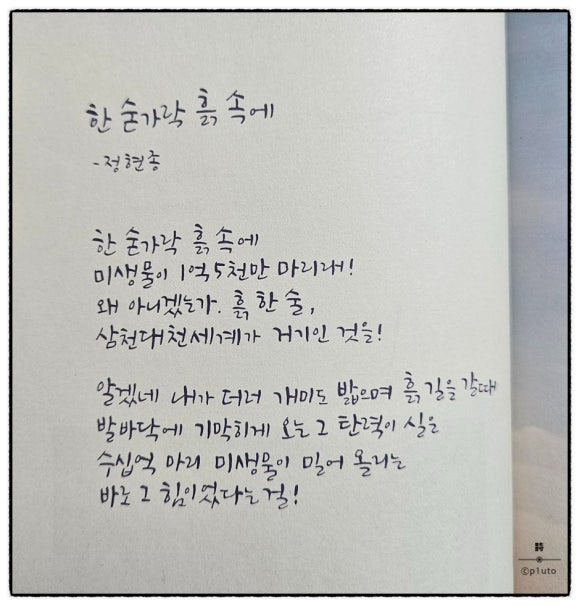 한 숟가락 흙 속에
-정현종
한 숟가락 흙 속에
미생물이 1억 5천만 마리래!
왜 아니겠는가. 흙 한 술,
삼천대천세계가 거기인 것을!
알겠네 내가 더러 개미도 밟으며 흙길을 갈때
발바닥에 기막히게 오는 그 탄력이 실은
수십억 마리 미생물이 밀어 올리는
바로 그 힘이었다는 걸!
詩
©p1uto